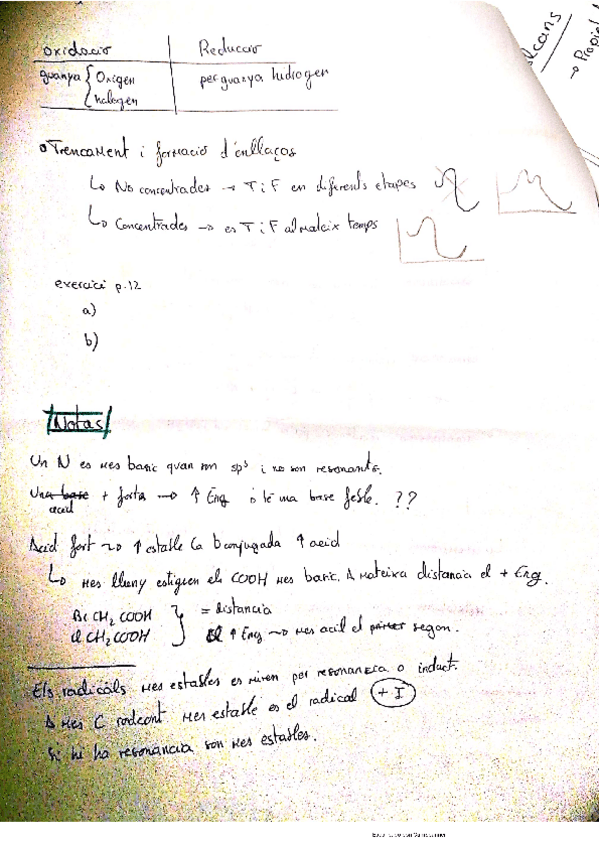 Oxidació Reducció
guanya { Oxigen perguanya hidrogen
halogen
Trencament i formació d'enllaços
↳ No concentrades → T i F en diferents etapes
↳ Concentrades → es T i F al mateix temps
exercici p.12
a)
b)
Notas
Un N es mes basic quan son sp³ i no son resonants.
Una base + forta → ↑ Eng o té una base feble. ??
acid
Acid fort → ↑ estable la b conjugada ↑ acid
↳ mes lluny estiguen els COOH mes basic, A mateixa distancia el + Eng.
BrCH₂COOH } = distancia
ClCH₂COOH El ↑ Eng → mes acid el primer segon.
Els radicals mes estables es miren per resonancia o induct.
A mes C rodejant mes estable es el radical + I
Si hi ha resonancia son mes estables.